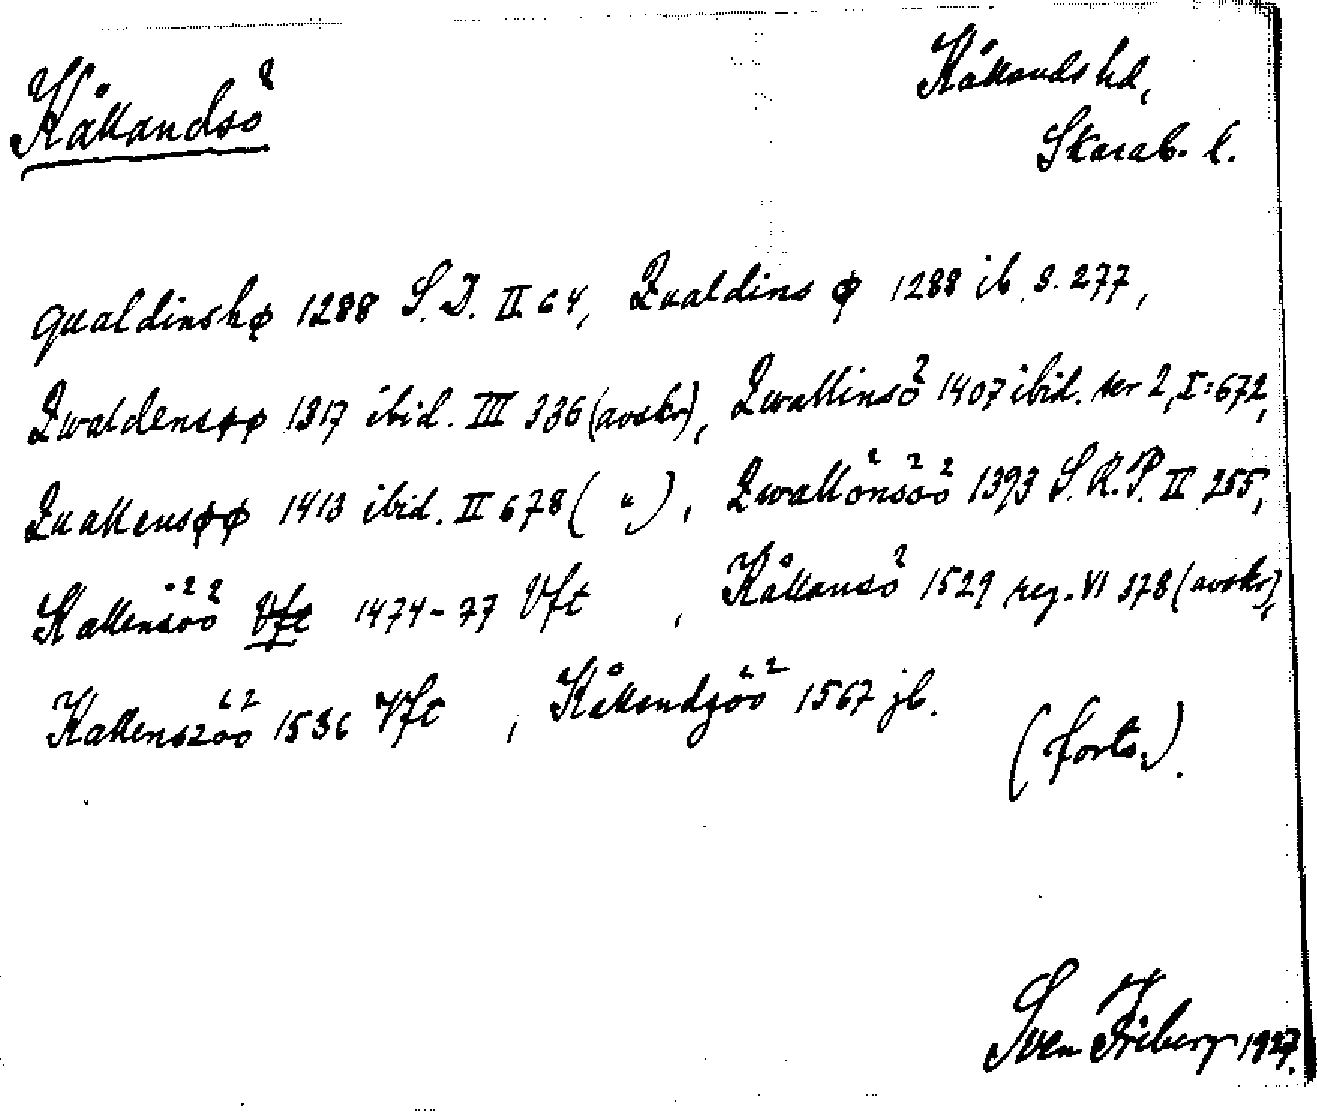 Kållandsö
Kållands hd,
Skarab. l.
qualdinshø 1288 S.D. II 64, Qualdins ø 1288 ib s. 277,
Qwaldensøø 1317 ibid. III 336 (avskr), Qwallinsö 1407 ibid. ser 2, I:672,
Quallensøø 1413 ibid. II 678 ( " ), Qwallönsöö 1393 S.R.P. II 255,
Kallensöö 1474-77 Vft , Kållansö 1529 reg. VI 378 (avskr),
Kallenszöö 1536 Vft , Kållendzöö 1567 jb.
(forts.).
Sven Friberg 1927.